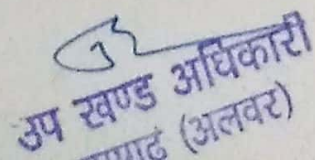 उप खण्ड अधिकारी
(अलवर)